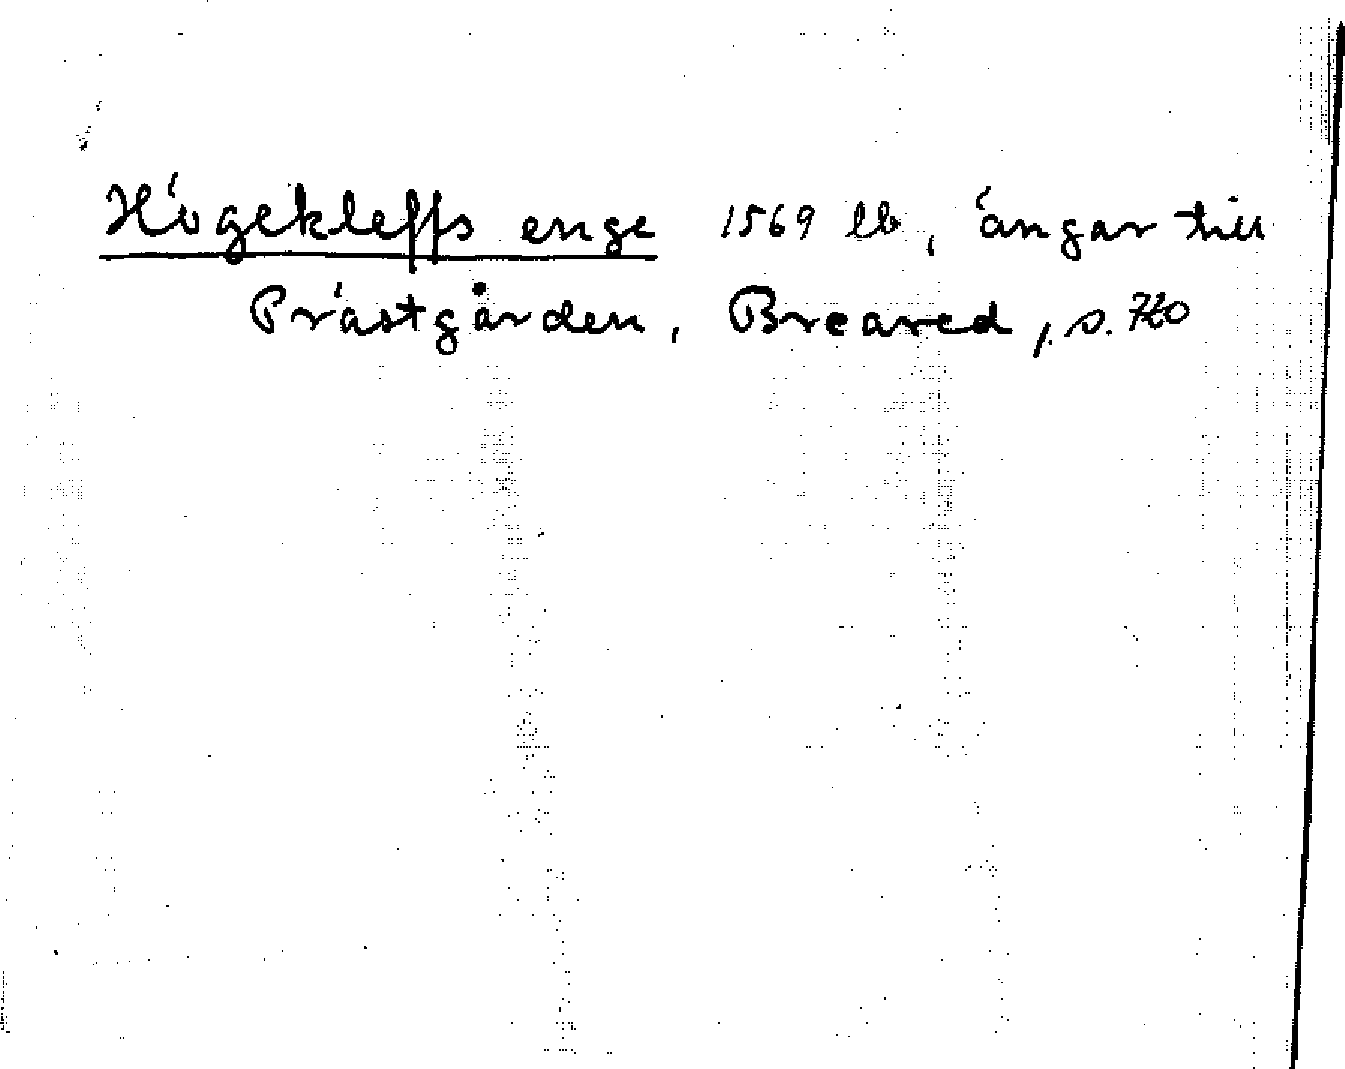 Högekleffs enge 1569 lb, ängar till
Prästgården, Breared, s. 720